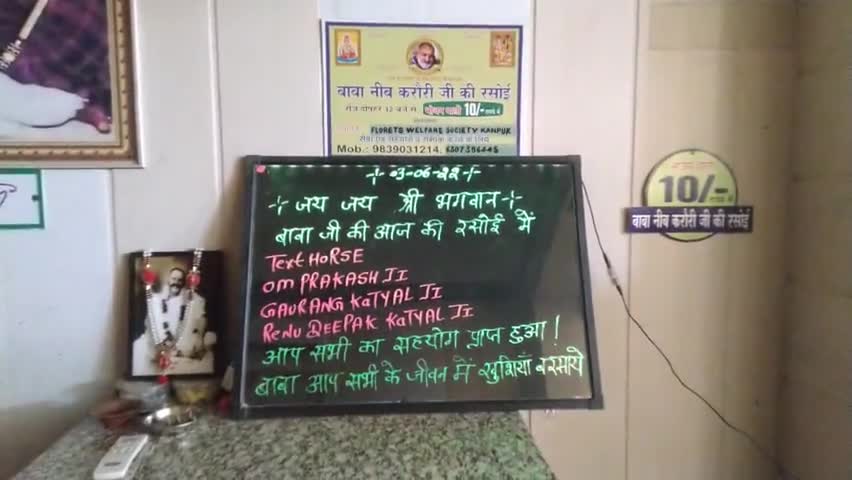 बाबा नीब करौरी जी की रसोई
रोज दोपहर 12 बजे से
10/-
FLORETS WELFARE SOCIETY KANPUR
Mob.: 9839031214,
03-06-22
जय जय श्री भगवान
बाबा जी की आज की रसोई में
Text HORSE
OM PRAKASH JI
GAURANG KATYAL JI
RENU DEEPAK KATYAL JI
आप सभी का सहयोग प्राप्त हुआ!
बाबा आप सभी के जीवन में खुशियाँ बरसाये
10/-
बाबा नीब करौरी जी की रसोई